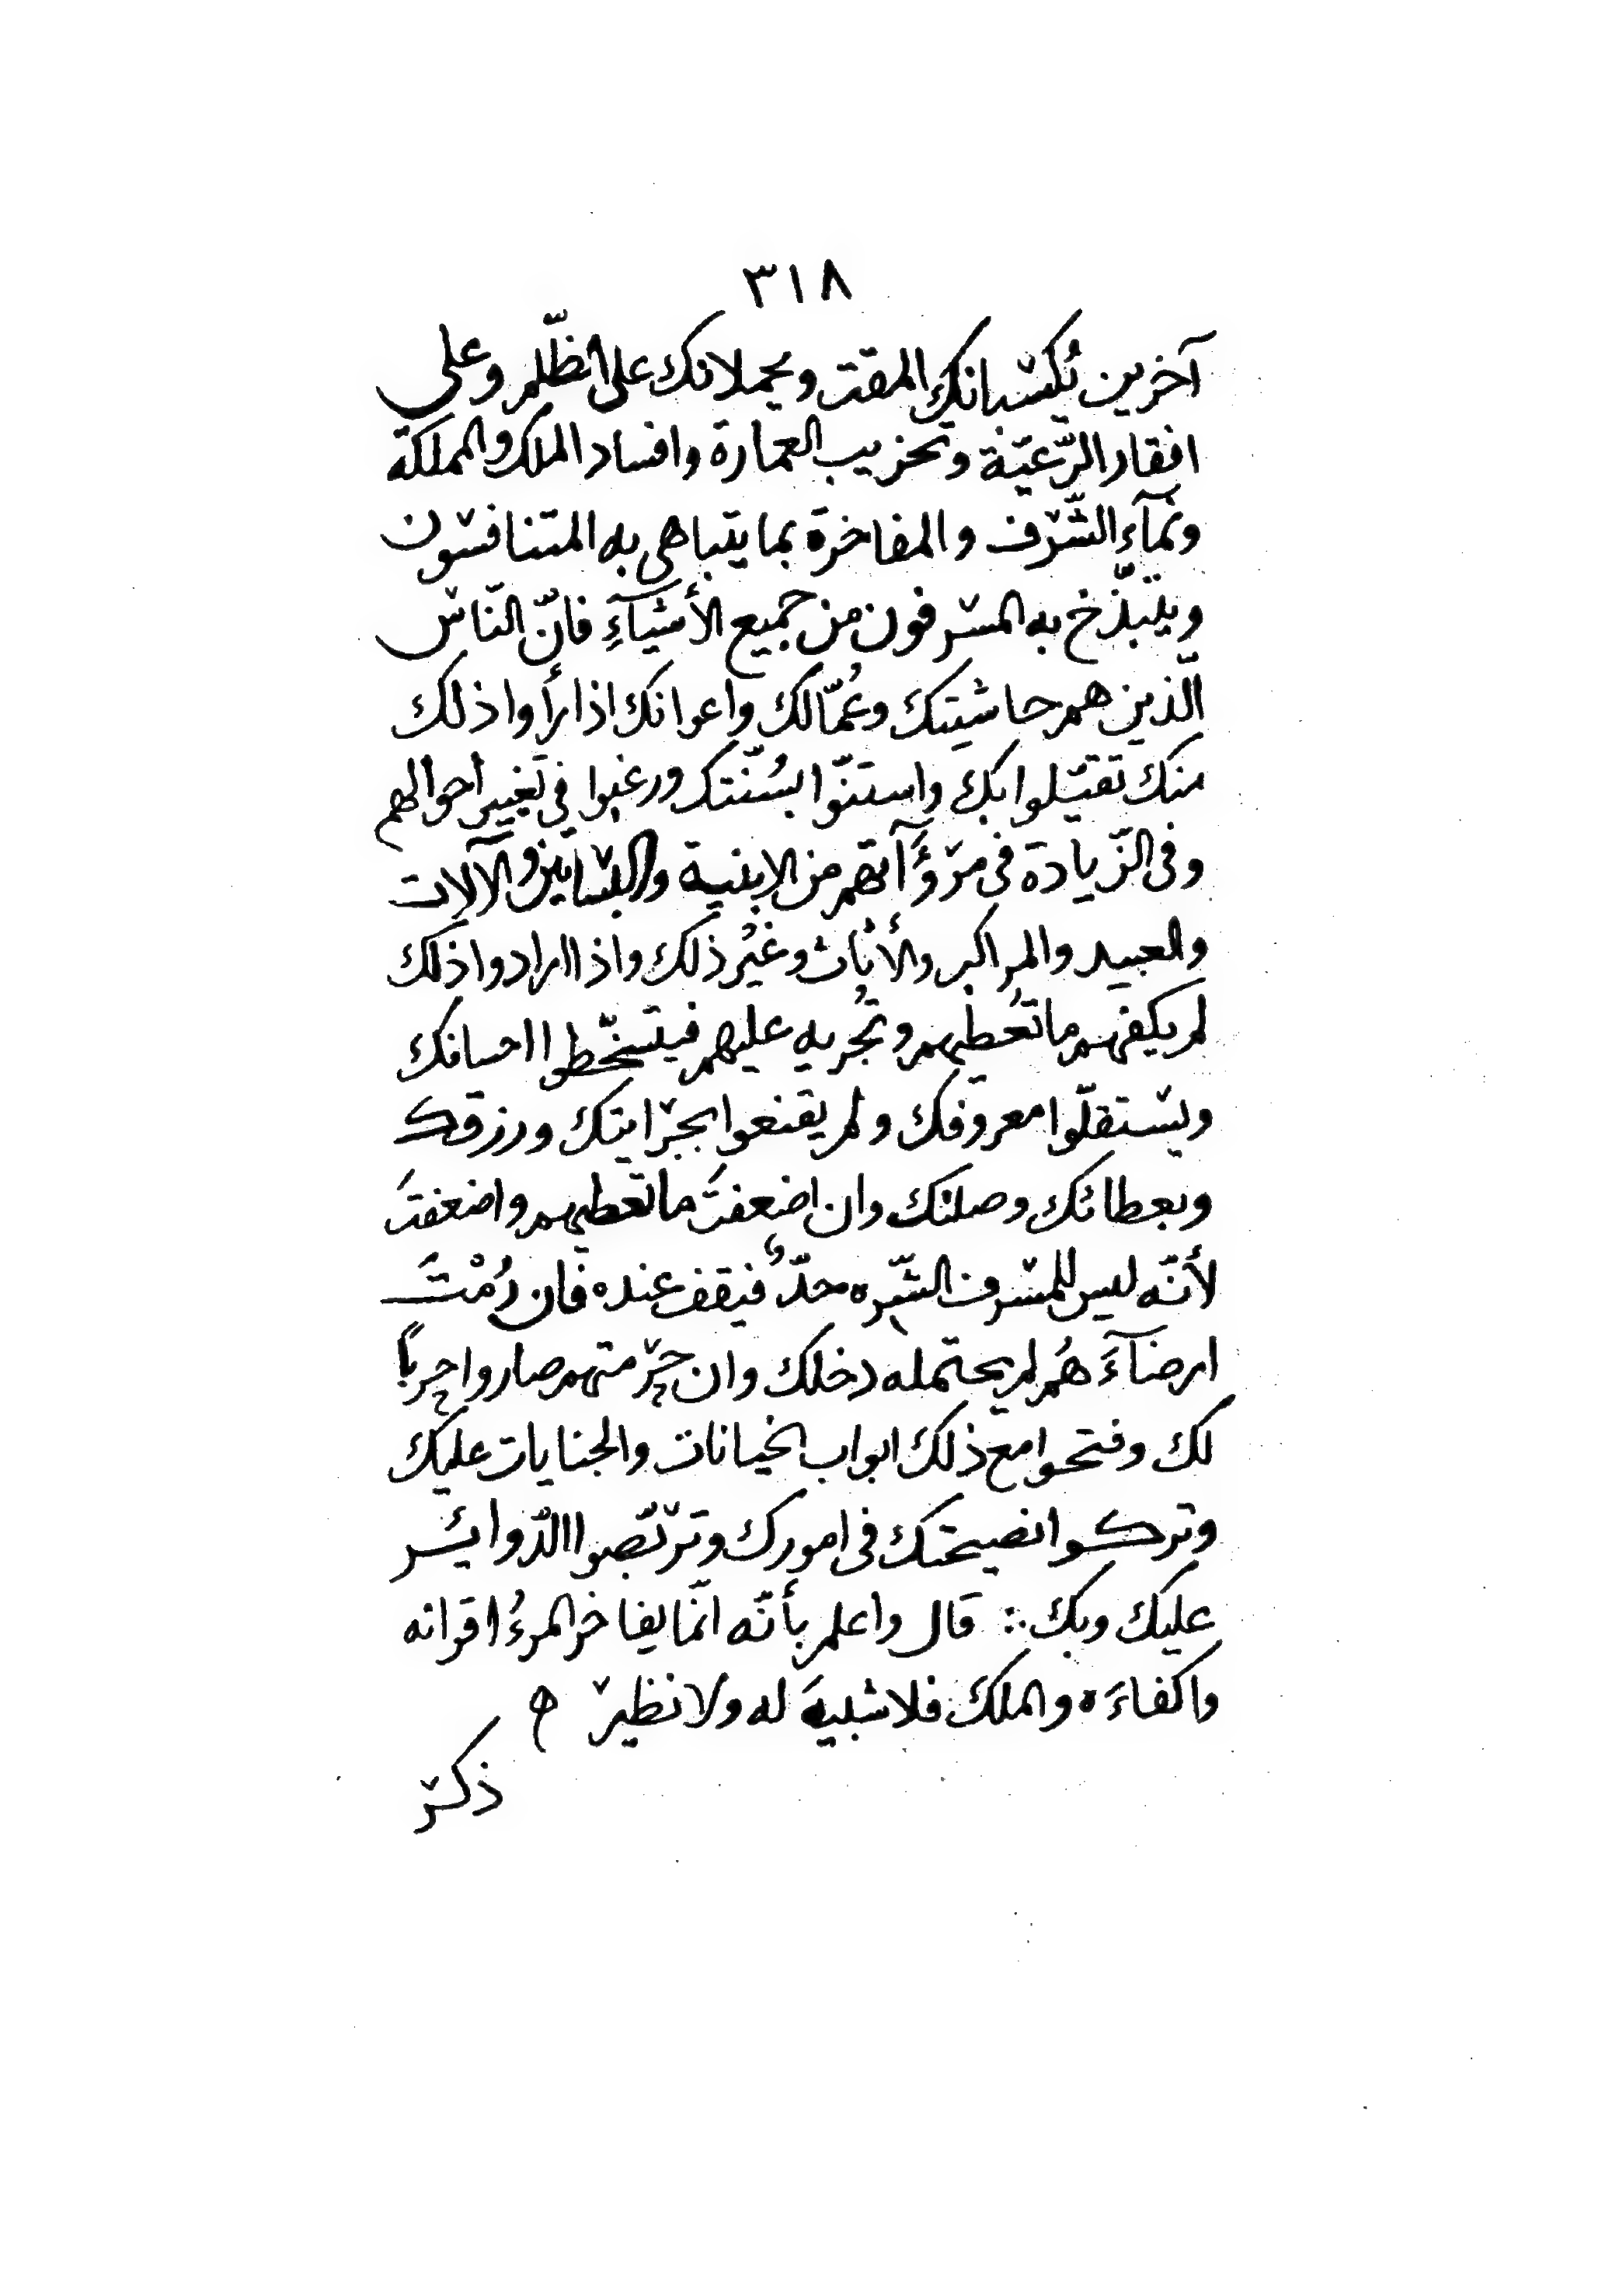 ٣١٨
آخرين يُكسبانك المقت ويحملانك على الظّلم وعلى
افقار الرّعيّة وتخريب العمارة وافساد الملك والمملكة
ونمآءِ الشّرف والمفاخرة بما يتباهى به المتنافسون
ويتبذّخ به المسرفون من جميع الأشيآءِ فانّ النّاس
الّذين هم حاشيتك وعُمّالك واعوانك اذا رأوا ذلك
منك تقيّلوا بك واستنّوا بسُنّتك ورغبوا فى تغيير احوالهم
وفى الزّيادة فى مرؤَآتهم من الابنية والبساتين والآلات
والعبيد والمراكب والأثاث وغير ذلك واذا ارادوا ذلك
لم يكفهم ما تُعطيهم وتُجريه عليهم فيتسخّطوا احسانك
ويستقلّوا معروفك ولم يقنعوا بجرايتك ورزقك
وبعطائك وصلتك وان اضعفتَ ما تعطيهم واضعفتَ
لأنّه ليس للمسرف الشّره حدٌّ فيقف عنده فان رُمْتَ
ارضآءَهُم لم يحتمله دخلك وان حرمتهم صاروا حرباً
لك وفتحوا مع ذلك ابواب الخيانات والجنايات عليك
وتركوا نصيحتك فى امورك وتربّصوا الدّوائر
عليك وبك ∴ قال واعلم بأنّه انّما يفاخر المرءُ اقرانه
واكفاءَه والملك فلا شبيهَ له ولا نظير ه
ذكر